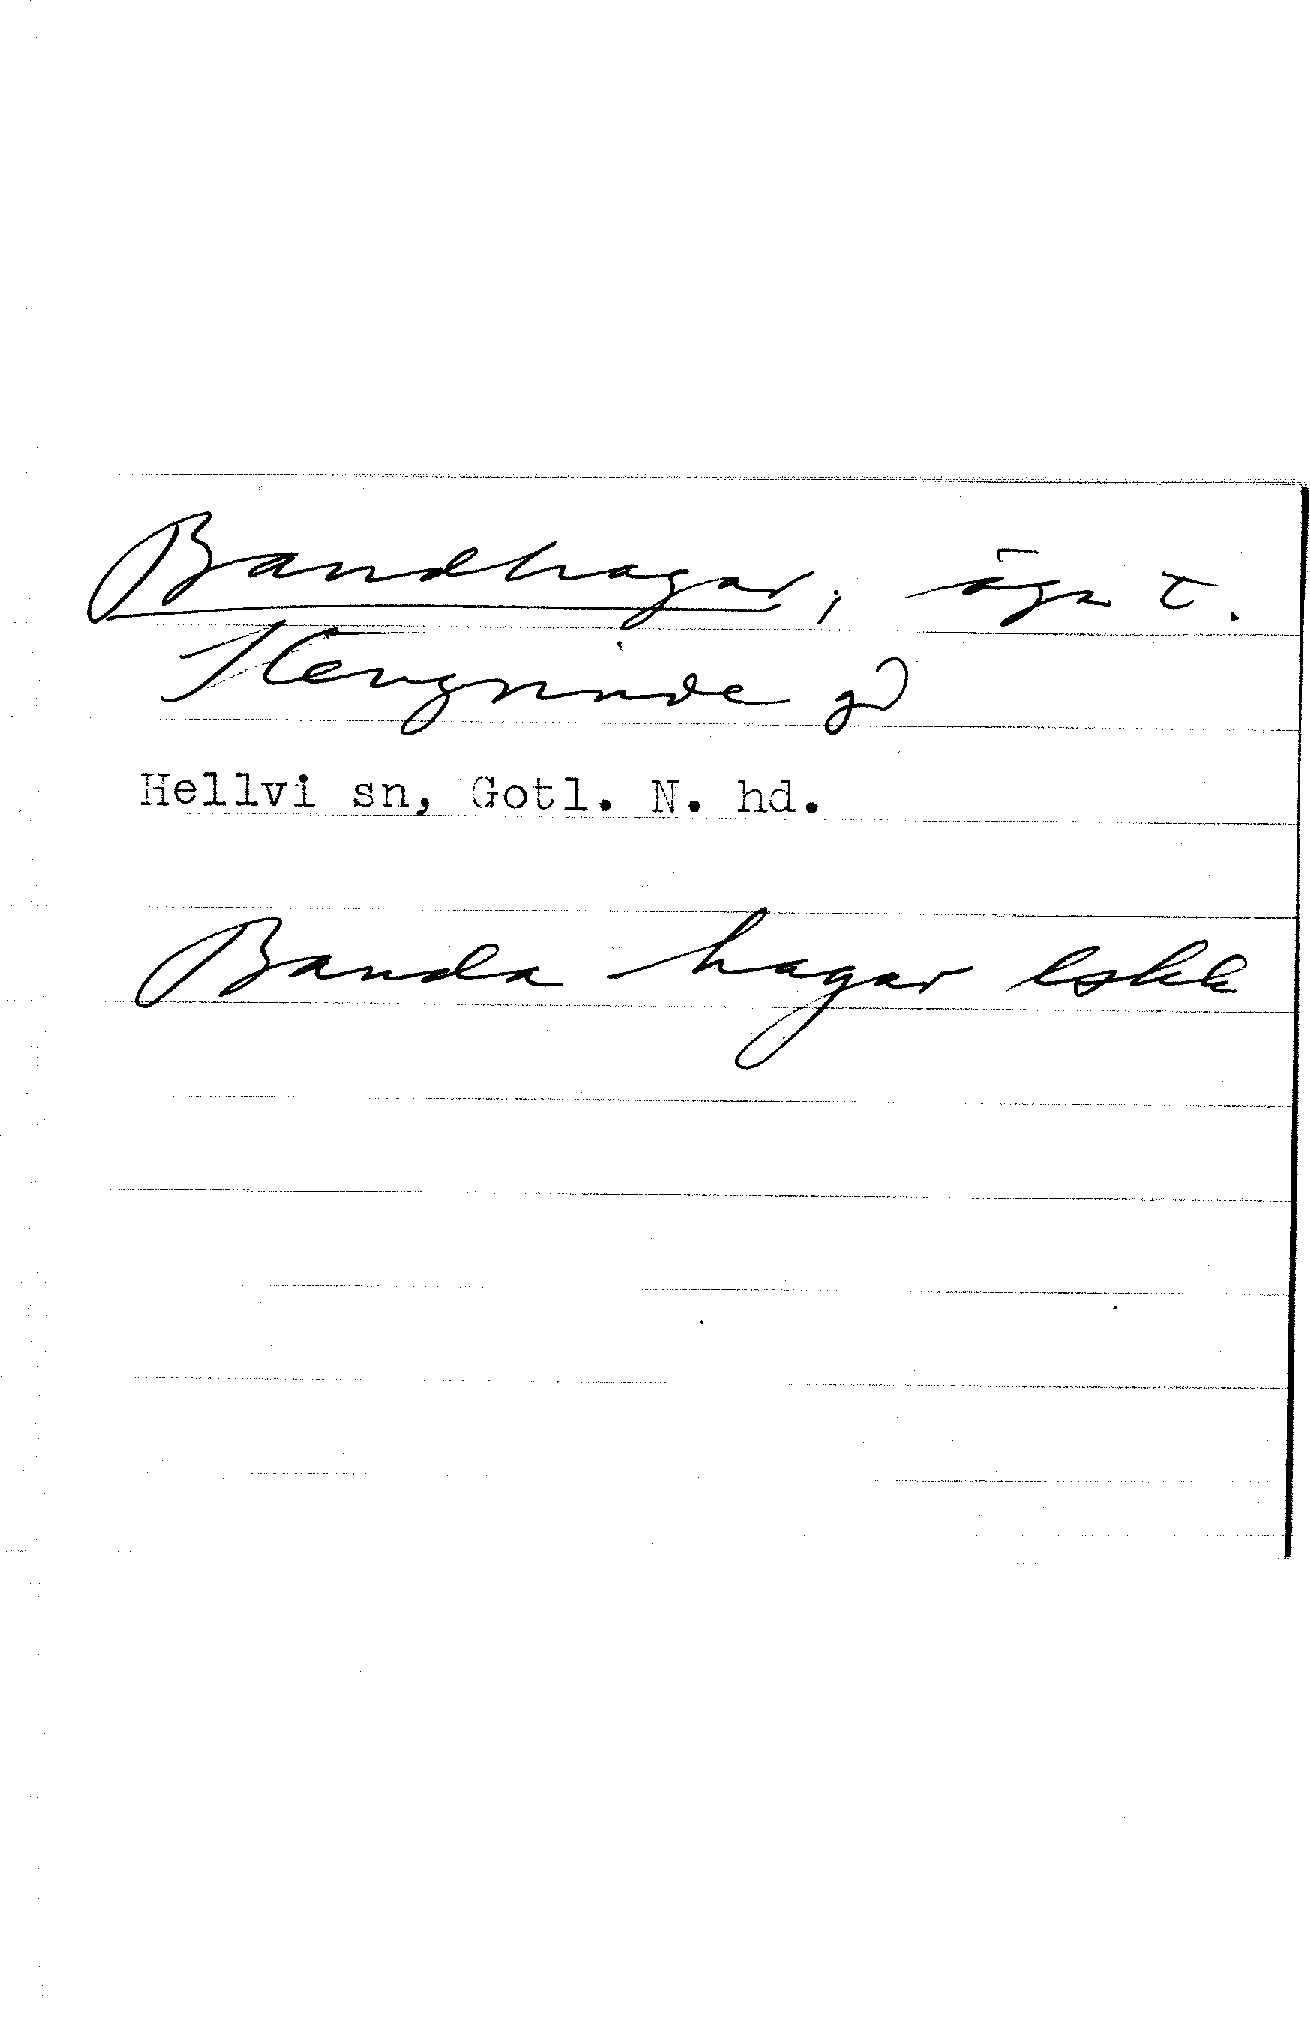 Bandhagar, ägor t.
Stengrinde gd
Hellvi sn, Gotl. N. hd.
Banda hagar